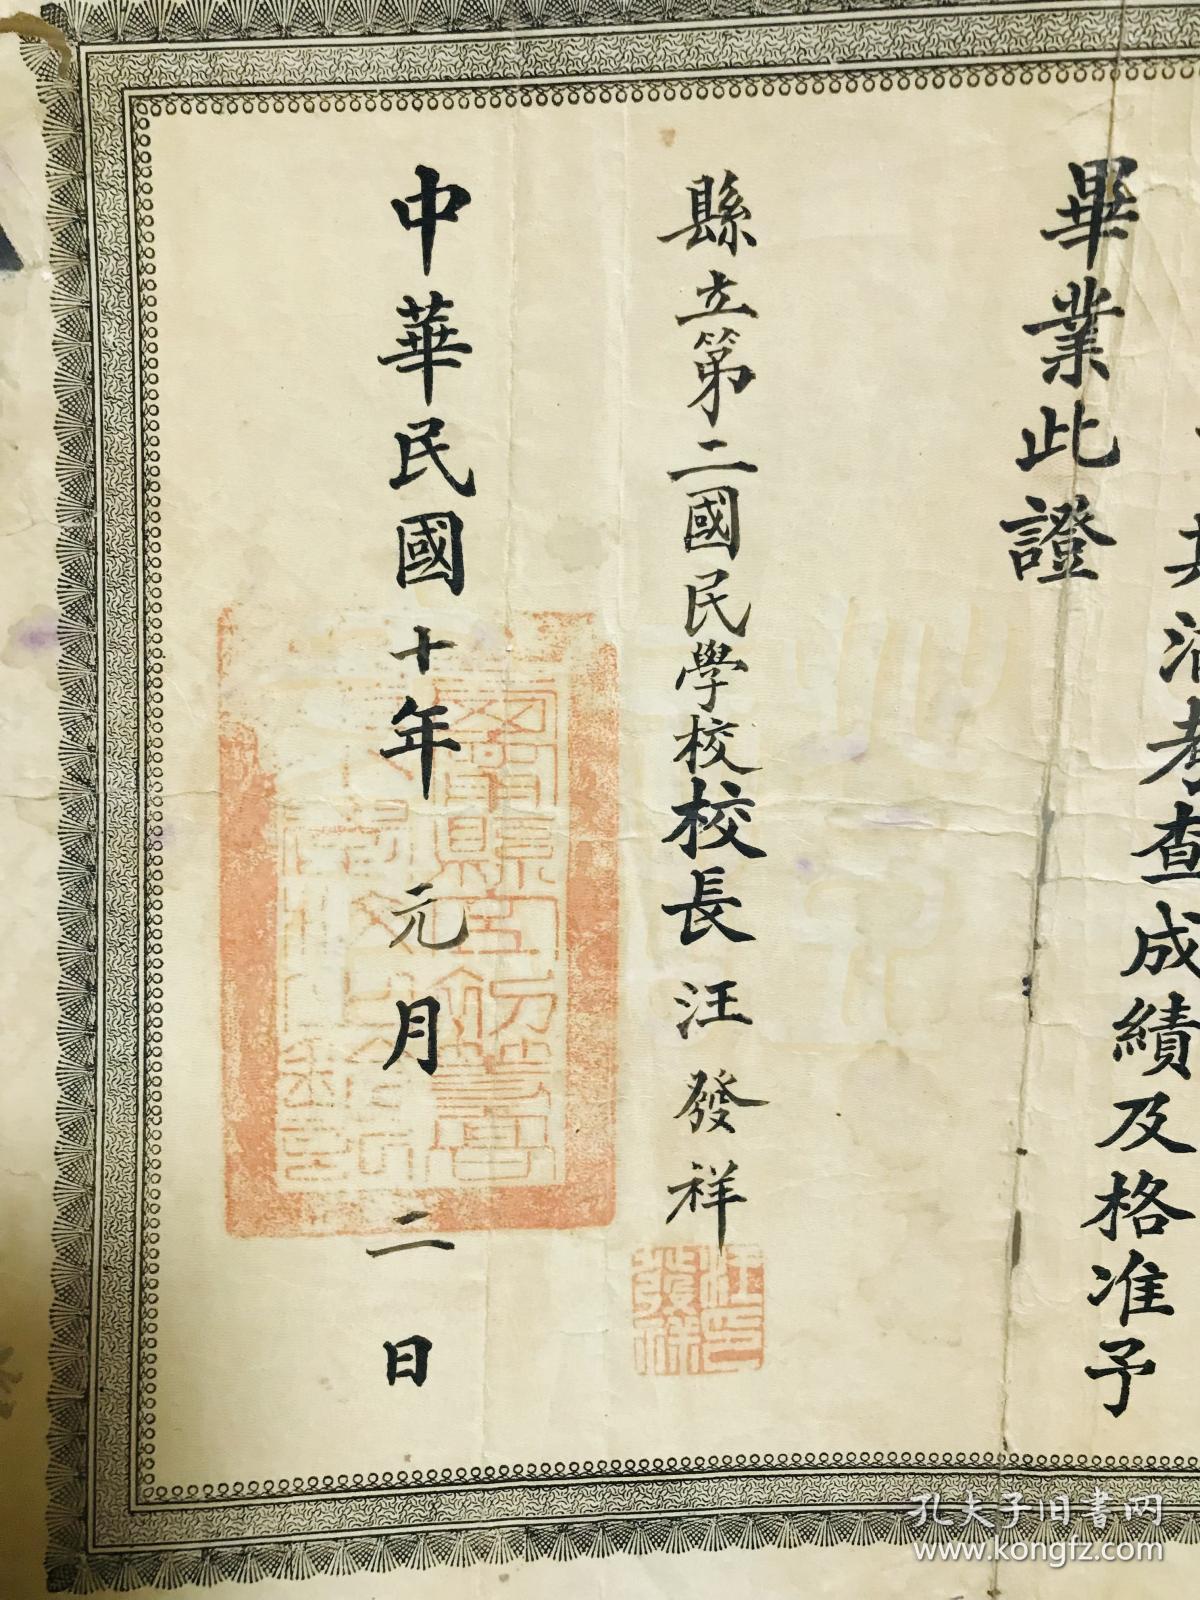 其
滿考查成績及格准予
畢業此證
縣立第二國民學校校長汪發祥
汪印發祥
中華民國十年元月二日
孔夫子旧書网
www.kongfz.com